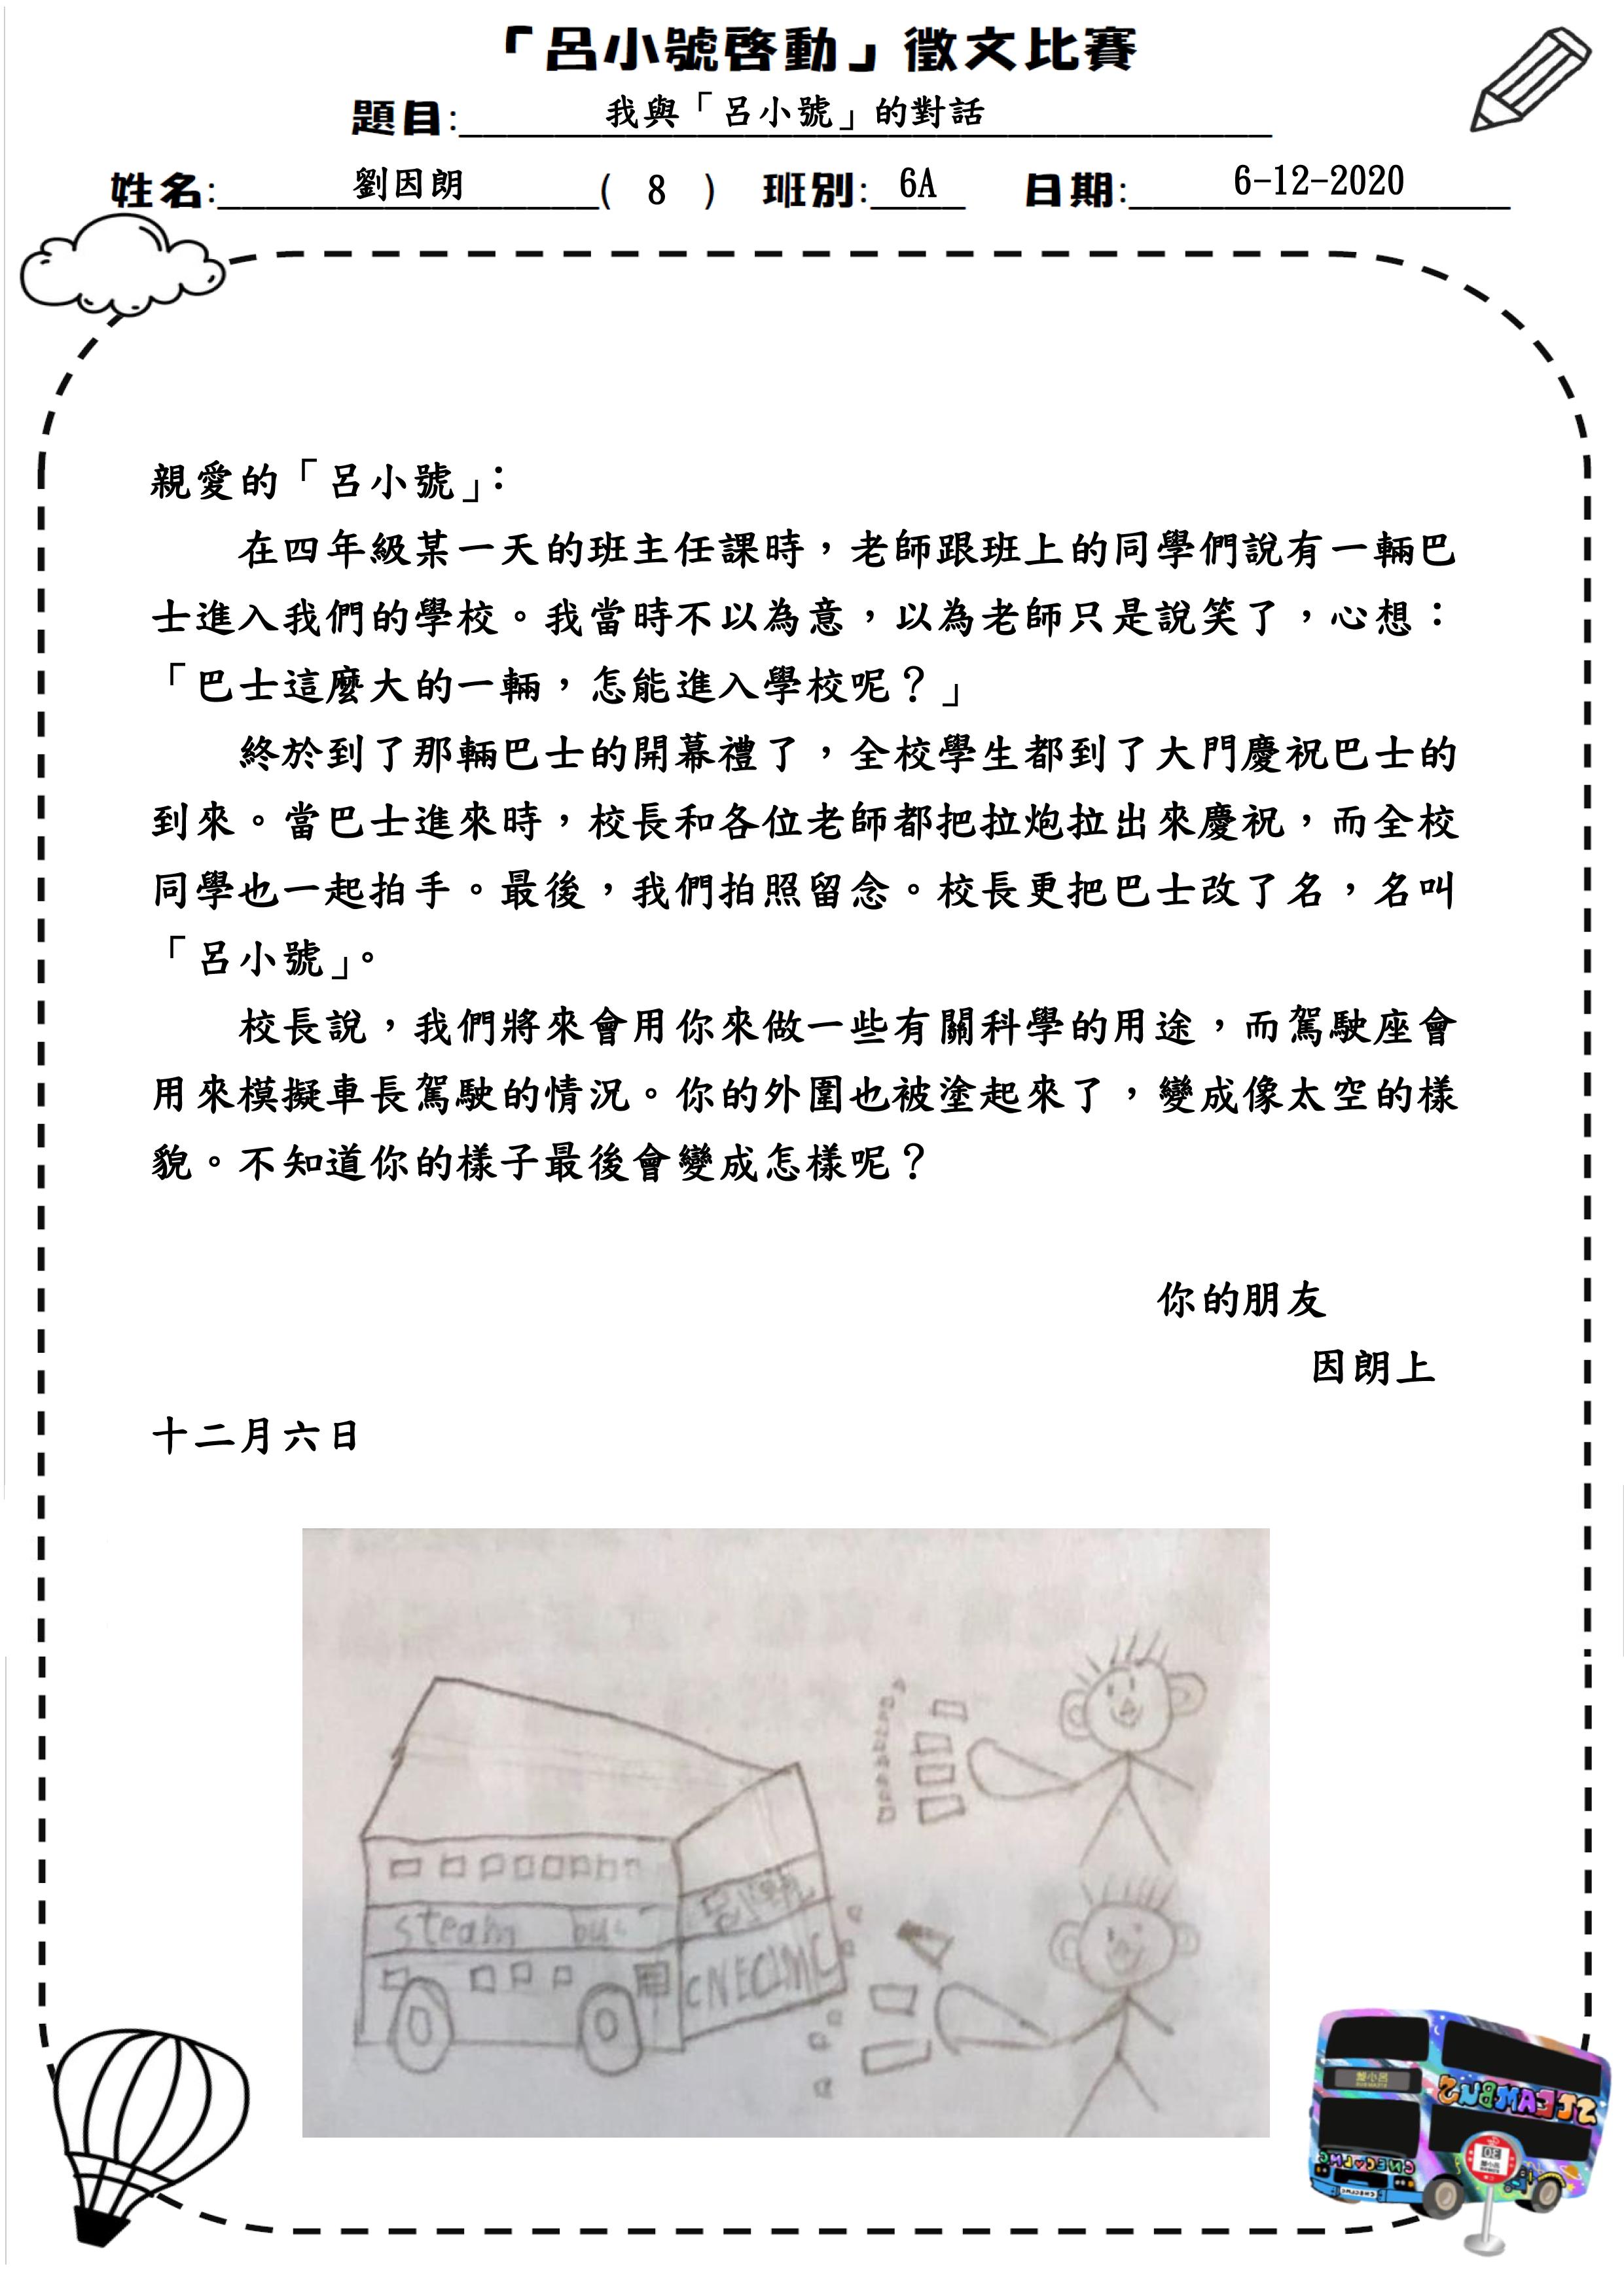 「呂小號啓動」徵文比賽
題目:我與「呂小號」的對話
姓名:劉因朗( 8 ) 班別:6A 日期:6-12-2020
親愛的「呂小號」:
在四年級某一天的班主任課時，老師跟班上的同學們說有一輛巴
士進入我們的學校。我當時不以為意，以為老師只是說笑了，心想：
「巴士這麼大的一輛，怎能進入學校呢？」
終於到了那輛巴士的開幕禮了，全校學生都到了大門慶祝巴士的
到來。當巴士進來時，校長和各位老師都把拉炮拉出來慶祝，而全校
同學也一起拍手。最後，我們拍照留念。校長更把巴士改了名，名叫
「呂小號」。
校長說，我們將來會用你來做一些有關科學的用途，而駕駛座會
用來模擬車長駕駛的情況。你的外圍也被塗起來了，變成像太空的樣
貌。不知道你的樣子最後會變成怎樣呢？
你的朋友
因朗上
十二月六日
steam bus
呂小號
CNECLMC
STEAMBUS
CNEC LMC